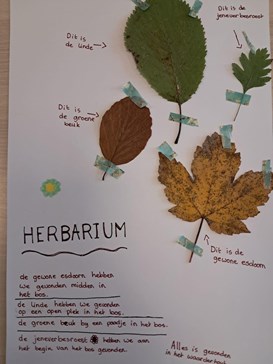 Dit is
de linde
Dit is
de jeneverbesroest
Dit is
de groene
beuk
HERBARIUM
Dit is de
gewone esdoorn
de gewone esdoorn hebben
we gevonden midden in
het bos.
de linde hebben we gevonden
op een open plek in het bos.
de groene beuk bij een paadje in het bos.
de jeneverbesroest hebben we aan
het begin van het bos gevonden.
Alles is gevonden
in het